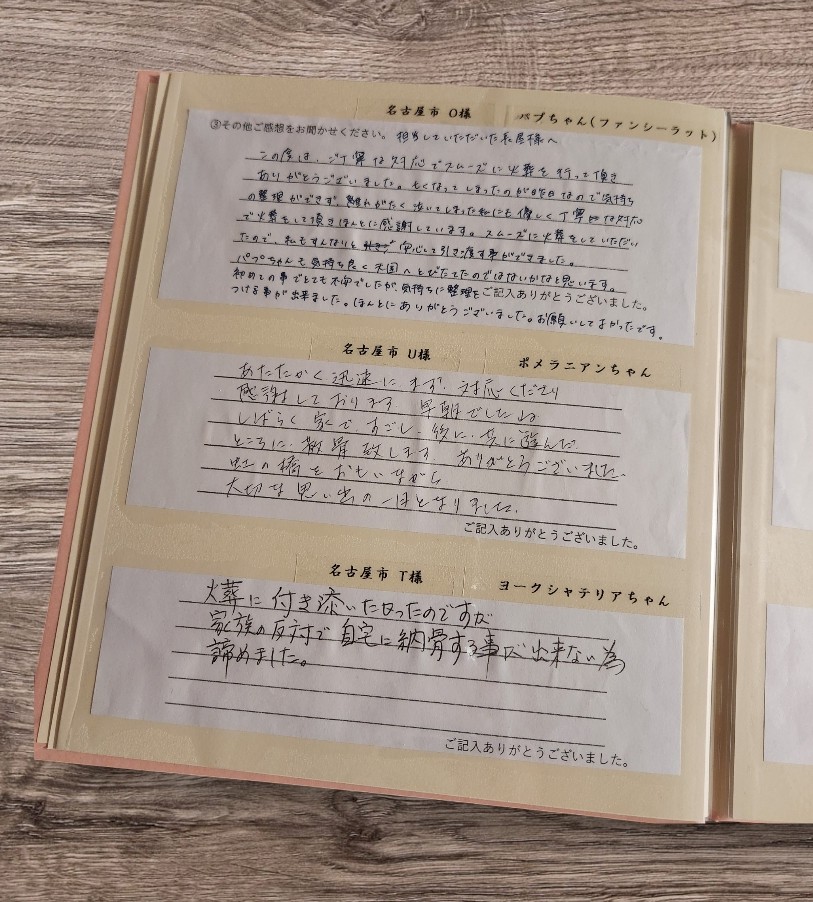 名古屋市 O様 パプちゃん(ファンシーラット)
③その他ご感想をお聞かせください。 担当していただいた長屋様へ
この度は、ご丁寧な対応でスムーズに火葬を行って頂き
ありがとうございました。亡くなってしまったのが昨日なので気持ち
の整理ができず、離れがたく泣いてしまった私にも優しく丁寧な対応
で火葬をして頂きほんとに感謝しています。スムーズに火葬をしていただい
たので、私もすんなりと 安心して引き渡す事ができました。
パプちゃんも気持ち良く天国へとびたてたのではないかなと思います。
初めての事でとても不安でしたが、気持ちに整理を ご記入ありがとうございました。
つける事が出来ました。ほんとにありがとうございました。お願いしてよかったです。
名古屋市 U様 ポメラニアンちゃん
あたたかく迅速にまず、対応くださり
感謝しております 早朝でしたね
しばらく家ですごし、後に、共に遊んだ
ところに、散骨致します。ありがとうございました
虹の橋をおもいながら
大切な思い出の一ほとなりました。
ご記入ありがとうございました。
名古屋市 T様 ヨークシャテリアちゃん
火葬に付き添いたかったのですが
家族の反対で自宅に納骨する事が出来ない為
諦めました。
ご記入ありがとうございました。